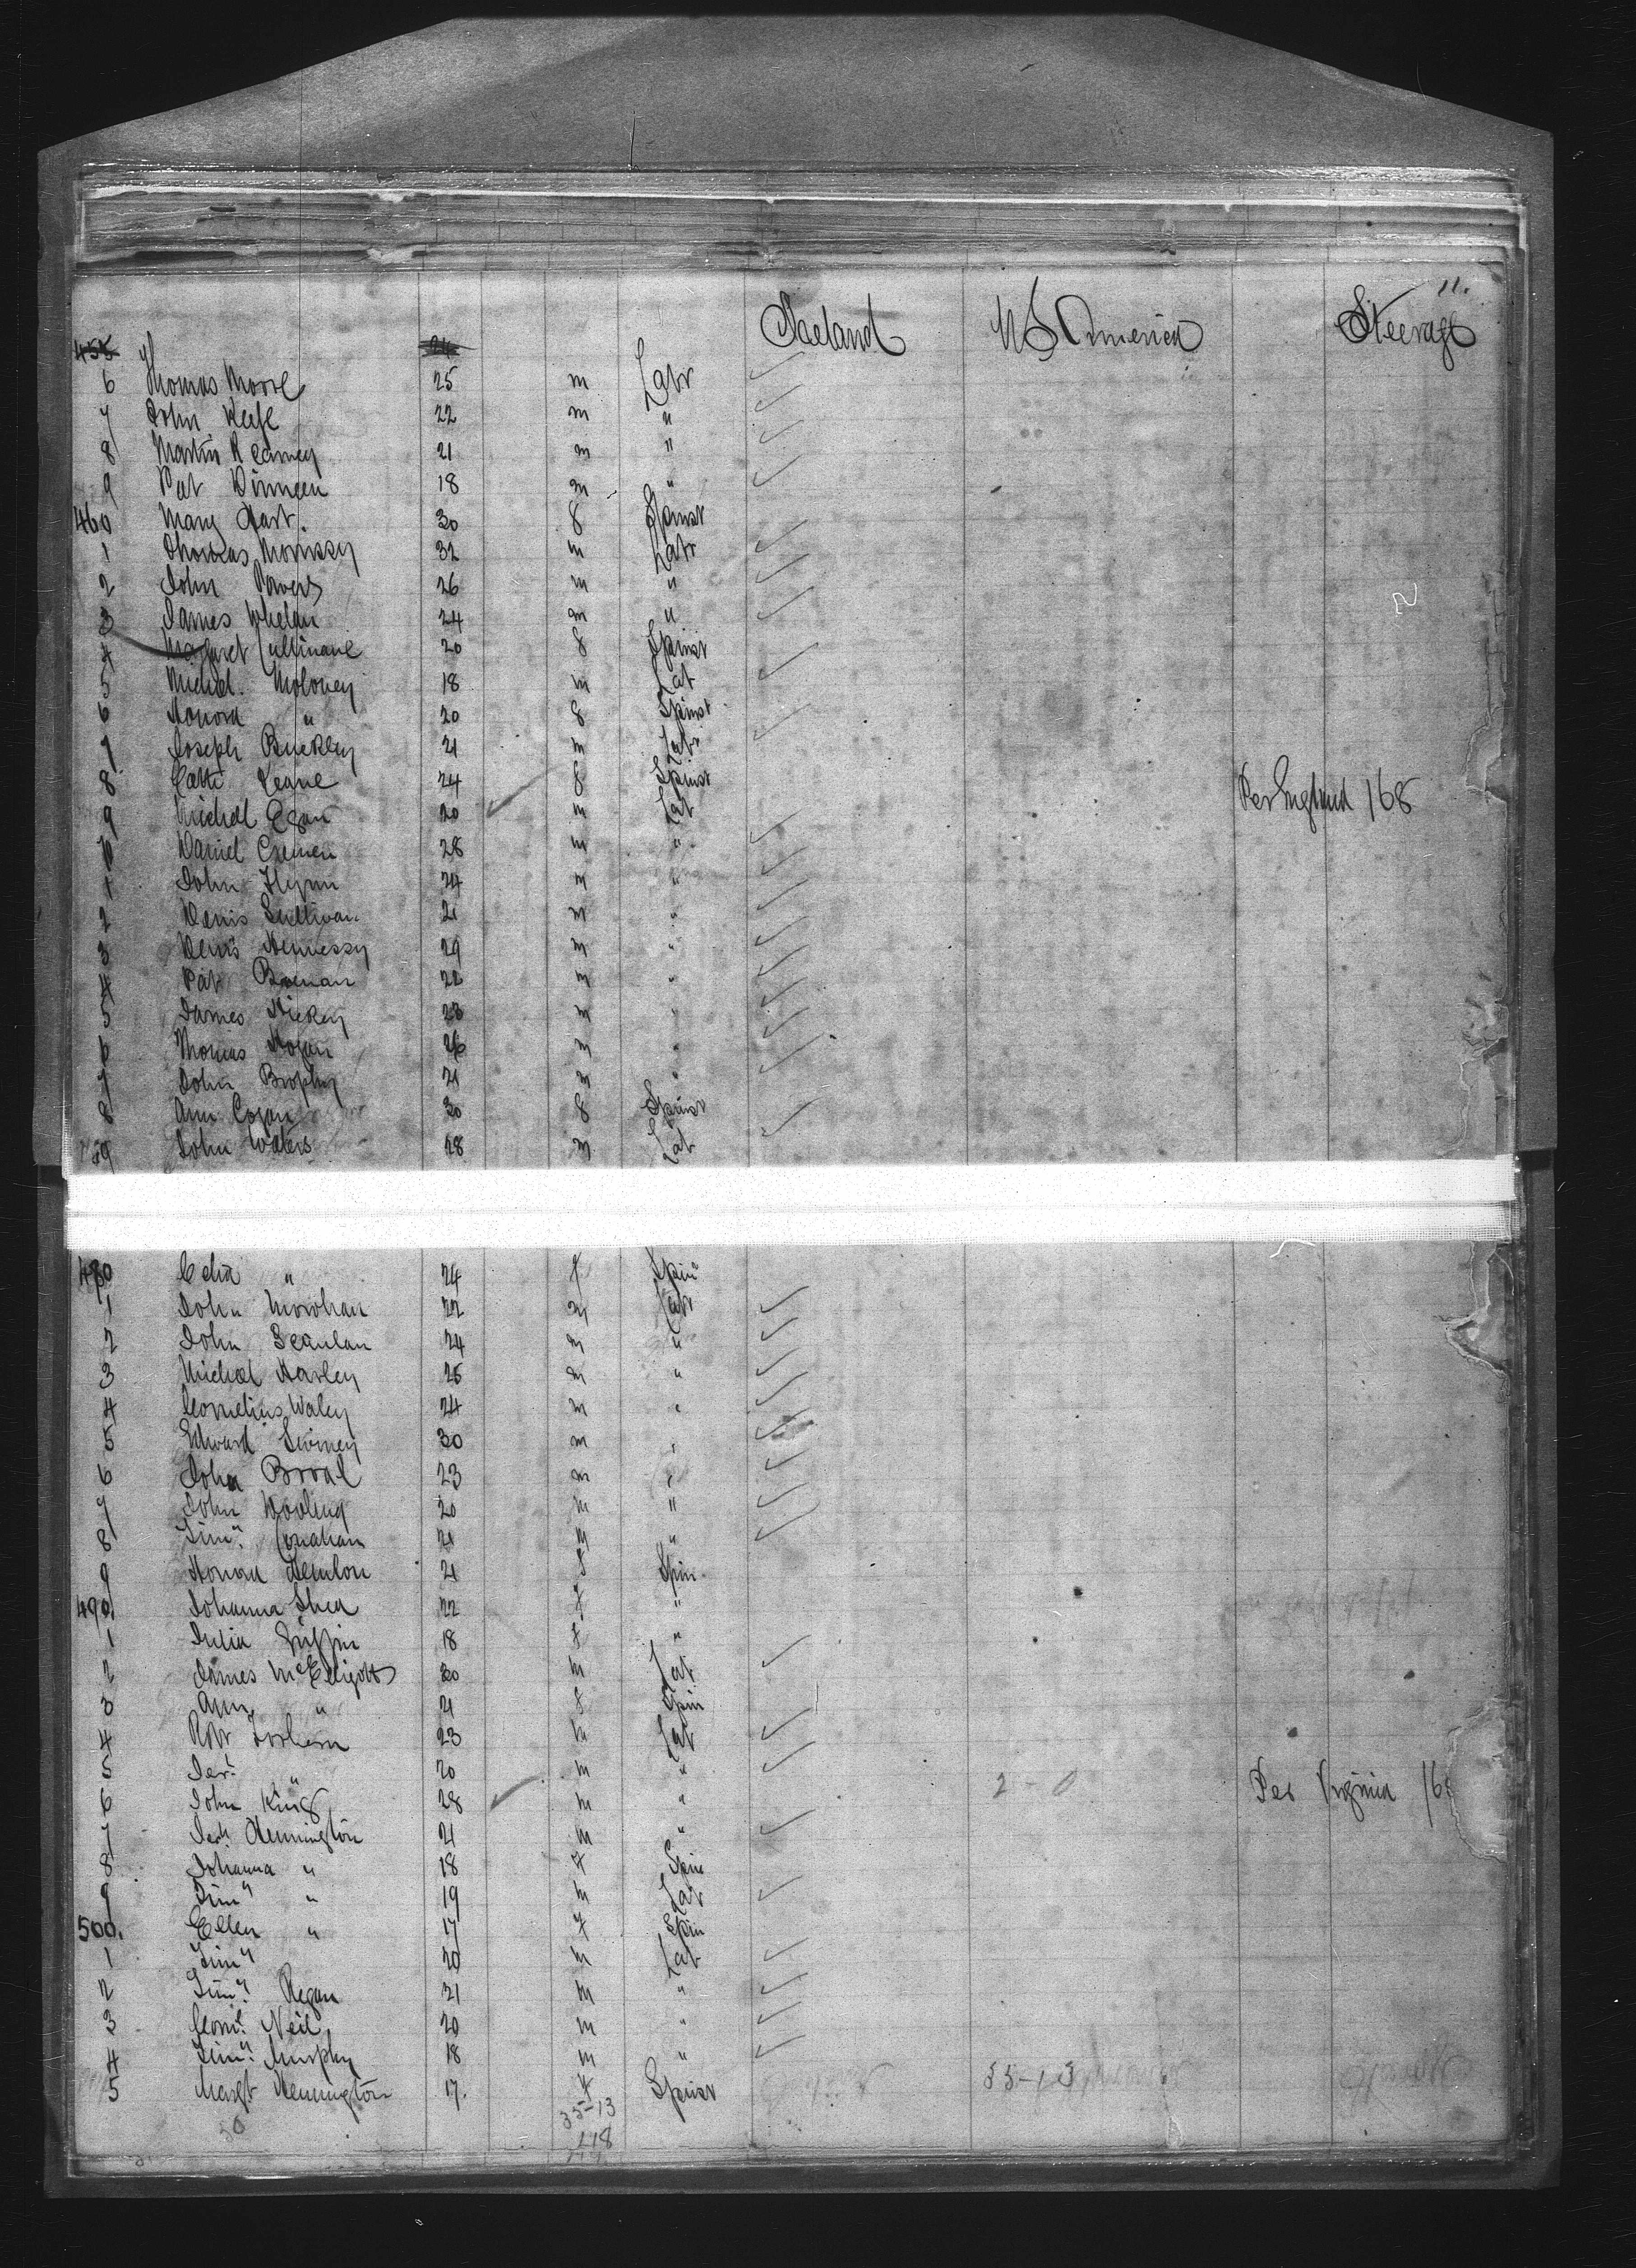 11.
Ireland U S America Steerage
455 24
6 Thomas Moore 25 m Labr
7 John Keefe 22 m "
8 Martin Kearney 21 m "
9 Pat Dinneen 18 m "
460 Mary Hart. 30 f Spinst
1 Thomas Morrissy 32 m Labr
2 John Powers 26 m "
3 James Whelan 24 m "
4 Margaret Cullinane 20 f Spinst
5 Michl. Moloney 18 m Lab
6 Honora " 20 f Spinst
7 Joseph Buckley 21 m Labr
8 Cath Keane 24 f Spinst
9 Michael Egan 20 m Lab Per England 168
70 Daniel 28 m "
1 John Flynn 24 m "
2 Denis Sullivan 21 m "
3 Denis Hennessy 29 m "
4 Pat Brenan 22 m "
5 James Hickey 23 m "
6 Thomas Hogan 26 m "
7 John Brophy 21 m "
8 Ann Cogan 30 f Spinst
479 John Waters 28 m Lab
480 Celia " 24 f Spin
1 John 22 m Labr
2 John Scanlan 24 m "
3 Michael Harley 25 m "
4 Cornelius Waley 24 m "
5 Edward 30 m "
6 John 23 m "
7 John 20 m "
8 Timy. 21 m "
9 Honora 21 f Spin
490 Johanna Shea 22 f "
1 Julia Griffin 18 f "
2 James McElligott 30 m Lab
3 Ann " 21 f Spin
4 Robt 23 m Lab
5 Jer. " 20 m "
6 John King 28 m " 2 - 0 Per Virginia 16
7 Jerh. Hennington 21 m "
8 Johanna " 18 f Spin
9 Timy " 19 m Lab
500. Ellen " 17 f Spin
1 Timy 20 m Lab
2 Timy. Regan 21 m "
3 Corns. Neil 20 m "
4 Timy. Murphy 18 m "
5 Margt. Hennington 17. f Spinst 35-13
50 35-13
118